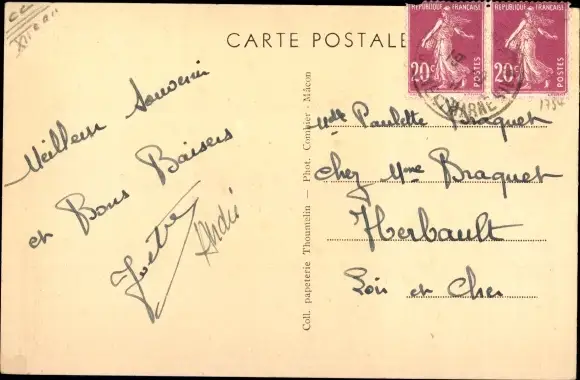 CARTE POSTALE
RÉPUBLIQUE FRANÇAISE
20c POSTES
RÉPUBLIQUE FRANÇAISE
20c POSTES
MARNE
Meilleur Souvenir
et Bons Baisers
André
Coll. papeterie Thoumelin – Phot. Combier - Mâcon
Mlle Paulette Braquet
chez Mme Braquet
Herbault
Loir et Cher